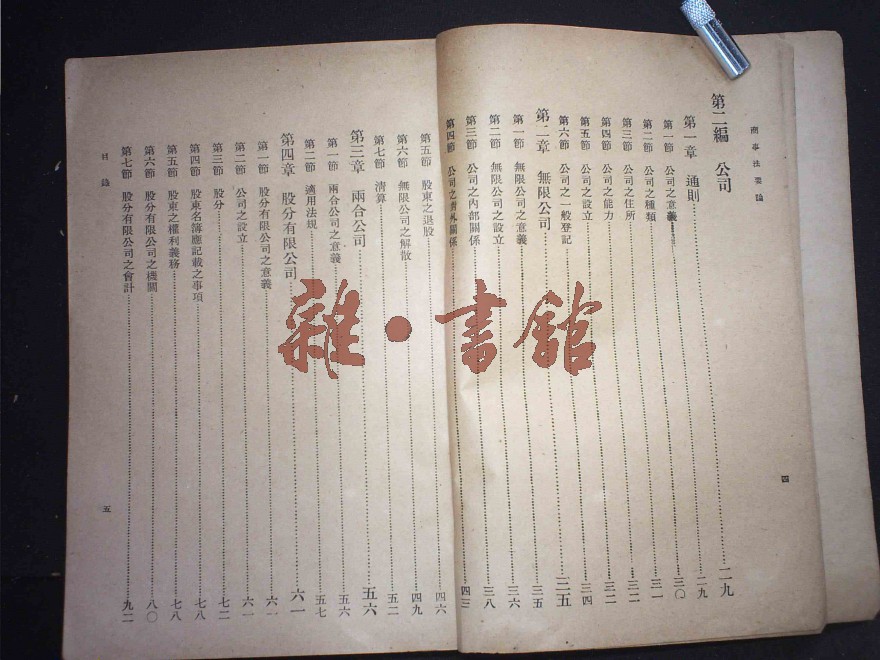 商事法要論
四
第二編 公司……二九
第一章 通則……二九
第一節 公司之意義……三〇
第二節 公司之種類……三一
第三節 公司之住所……三二
第四節 公司之能力……三二
第五節 公司之設立……三四
第六節 公司之一般登記……三五
第二章 無限公司……三五
第一節 無限公司之意義……三六
第二節 無限公司之設立……三八
第三節 公司之內部關係
第四節 公司之對外關係……四三
第五節 股東之退股……四六
第六節 無限公司之解散……四九
第七節 清算……五二
第三章 兩合公司……五六
第一節 兩合公司之意義……五六
第二節 適用法規……五七
第四章 股分有限公司……六一
第一節 股分有限公司之意義……六一
第二節 公司之設立……六一
第三節 股分……七二
第四節 股東名簿應記載之事項……七八
第五節 股東之權利義務……七八
第六節 股分有限公司之機關……八〇
第七節 股分有限公司之會計……九二
目錄
五
雜·書館